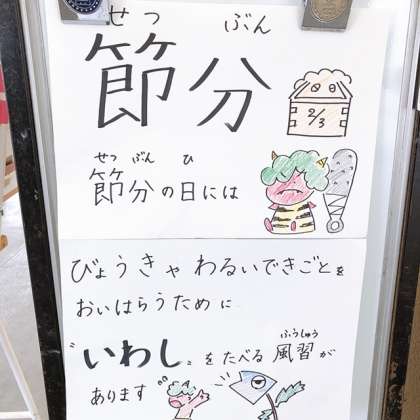 せつ ぶん
節分
2/3
せつ ぶん ひ
節分の日には
びょうきゃ わるいできごとを
おいはらうために
ふうしゅう
"いわし"をたべる風習が
あります